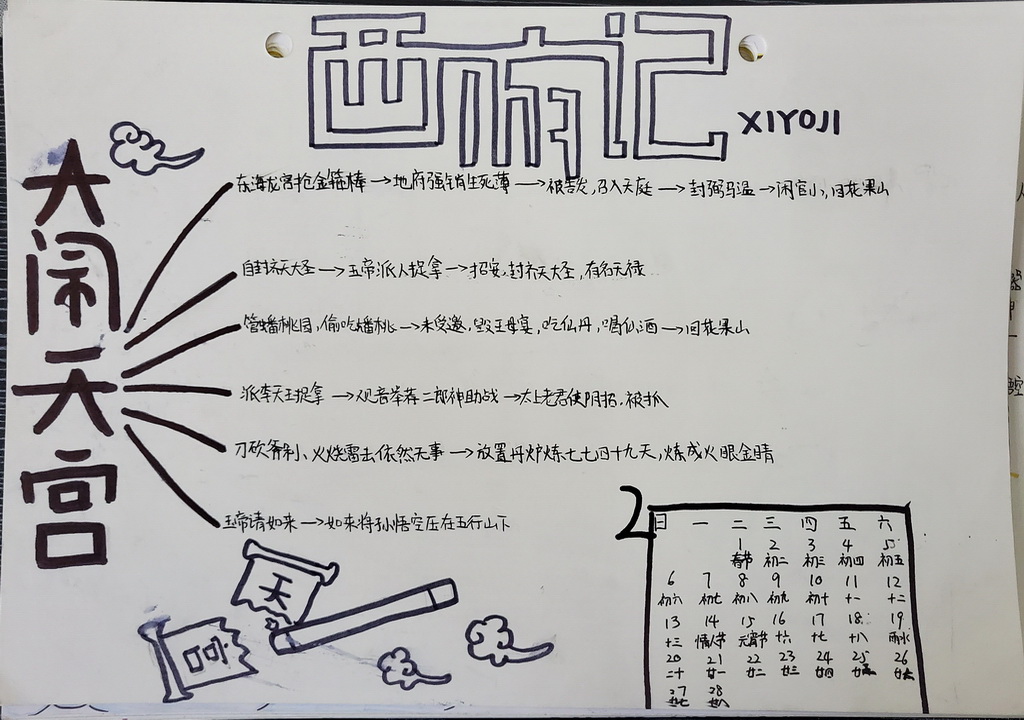 西游记
XIYOJI
大闹天宫
东海龙宫抢金箍棒→地府强销生死薄→被告发,召入天庭→封弼马温→闲官小,回花果山
自封齐天大圣→玉帝派人捉拿→招安,封齐天大圣,有名无禄
管蟠桃园,偷吃蟠桃→未受邀,毁王母宴,吃仙丹,喝仙酒→回花果山
派李天王捉拿→观音举荐二郎神助战→太上老君使阴招,被抓
刀砍斧剁、火烧雷击依然无事→放置丹炉炼七七四十九天,炼成火眼金睛
玉帝请如来→如来将孙悟空压在五行山下
天
2
日 一 二 三 四 五 六
1 2 3 4 5
春节 初二 初三 初四 初五
6 7 8 9 10 11 12
初六 初七 初八 初九 初十 十一 十二
13 14 15 16 17 18 19
十三 情人节 元宵节 十六 十七 十八 雨水
20 21 22 23 24 25 26
二十 廿一 廿二 廿三 廿四 廿五 廿六
27 28
廿七 廿八